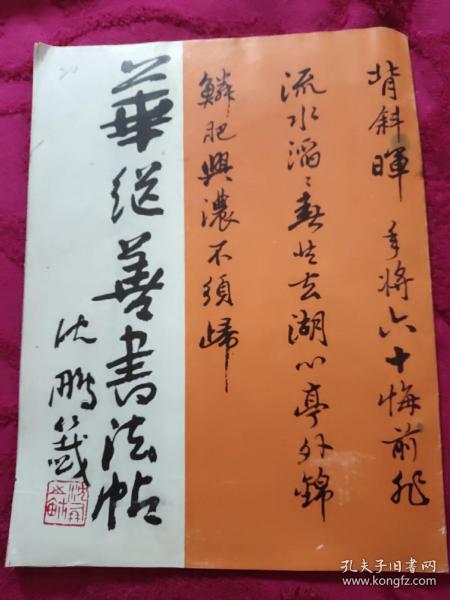 背斜暉 年將六十悔前非
流水滔〻春去湖心亭外錦
鱗肥興濃不須歸
華從善書法帖
沈鵬籤
孔夫子旧书网
www.kongfz.com